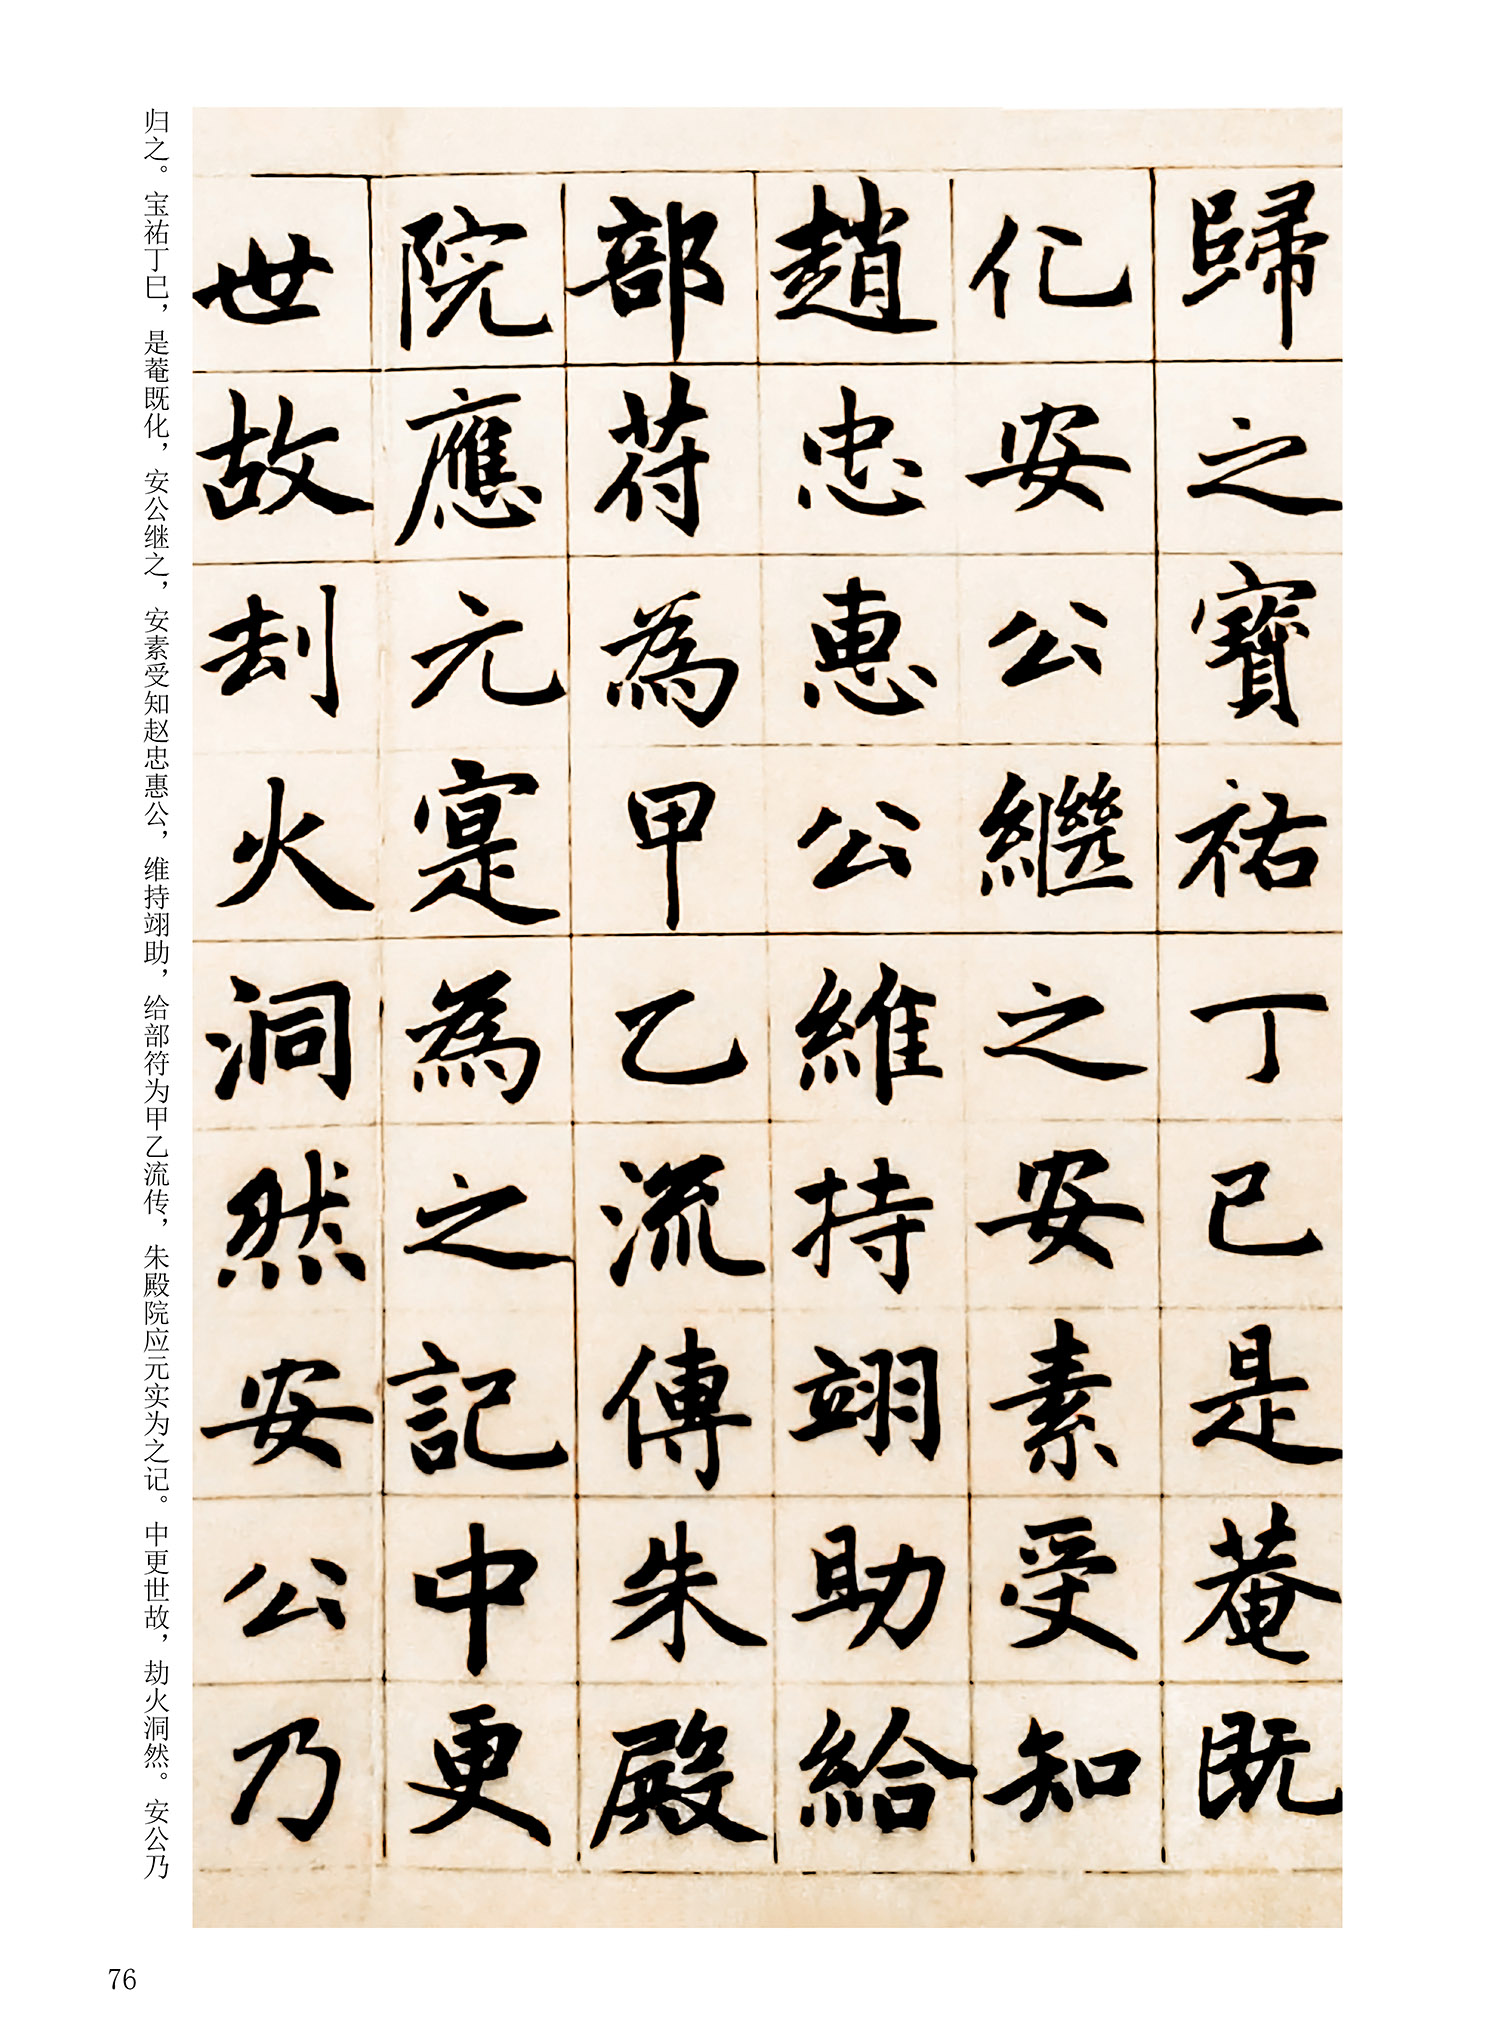 歸之寶祐丁巳是菴既
化安公繼之安素受知
趙忠惠公維持翊助給
部苻為甲乙流傳朱殿
院應元寔為之記中更
世故刦火洞然安公乃
归之。宝祐丁巳，是菴既化，安公继之，安素受知赵忠惠公，维持翊助，给部符为甲乙流传，朱殿院应元实为之记。中更世故，劫火洞然。安公乃
76